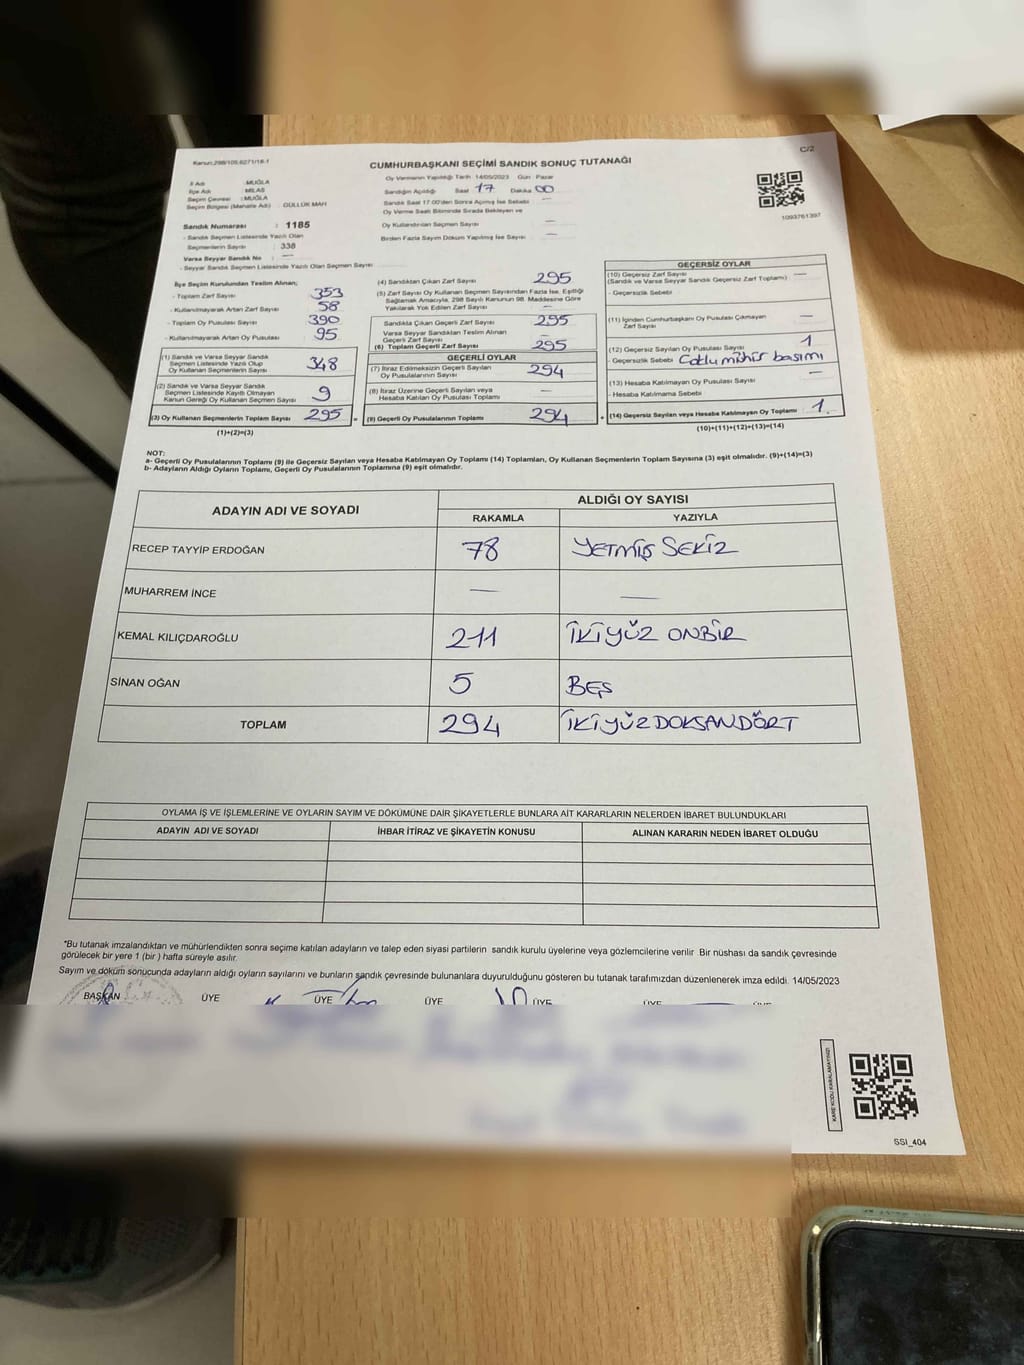 Kanun:298/105,6271/16-1
CUMHURBAŞKANI SEÇİMİ SANDIK SONUÇ TUTANAĞI
C/2
İl Adı : MUĞLA
İlçe Adı : MİLAS
Seçim Çevresi : MUĞLA
Seçim Bölgesi (Mahalle Adı) : GÜLLÜK MAH
Oy Vermenin Yapıldığı Tarih : 14/05/2023 Gün : Pazar
Sandığın Açıldığı Saat 17 Dakika 00
Sandık Saat 17:00'den Sonra Açılmış İse Sebebi —
Oy Verme Saati Bitiminde Sırada Bekleyen ve
Oy Kullandırılan Seçmen Sayısı —
Birden Fazla Sayım Döküm Yapılmış İse Sayısı —
1093761397
Sandık Numarası : 1185
- Sandık Seçmen Listesinde Yazılı Olan
Seçmenlerin Sayısı : 338
Varsa Seyyar Sandık No : —
- Seyyar Sandık Seçmen Listesinde Yazılı Olan Seçmen Sayısı
İlçe Seçim Kurulundan Teslim Alınan;
- Toplam Zarf Sayısı 353
- Kullanılmayarak Artan Zarf Sayısı 58
- Toplam Oy Pusulası Sayısı 390
- Kullanılmayarak Artan Oy Pusulası 95
(1) Sandık ve Varsa Seyyar Sandık
Seçmen Listesinde Yazılı Olup
Oy Kullanan Seçmenlerin Sayısı 348
(2) Sandık ve Varsa Seyyar Sandık
Seçmen Listesinde Kayıtlı Olmayan
Kanun Gereği Oy Kullanan Seçmen Sayısı 9
(3) Oy Kullanan Seçmenlerin Toplam Sayısı 295
(1)+(2)=(3)
(4) Sandıktan Çıkan Zarf Sayısı 295
(5) Zarf Sayısı Oy Kullanan Seçmen Sayısından Fazla İse, Eşitliği
Sağlamak Amacıyla, 298 Sayılı Kanunun 98. Maddesine Göre
Yakılarak Yok Edilen Zarf Sayısı —
Sandıkta Çıkan Geçerli Zarf Sayısı 295
Varsa Seyyar Sandıktan Teslim Alınan
Geçerli Zarf Sayısı —
(6) Toplam Geçerli Zarf Sayısı 295
GEÇERLİ OYLAR
(7) İtiraz Edilmeksizin Geçerli Sayılan
Oy Pusulalarının Sayısı 294
(8) İtiraz Üzerine Geçerli Sayılan veya
Hesaba Katılan Oy Pusulası Toplamı —
(9) Geçerli Oy Pusulalarının Toplamı 294
GEÇERSİZ OYLAR
(10) Geçersiz Zarf Sayısı —
(Sandık ve Varsa Seyyar Sandık Geçersiz Zarf Toplamı)
- Geçersizlik Sebebi
(11) İçinden Cumhurbaşkanı Oy Pusulası Çıkmayan
Zarf Sayısı —
(12) Geçersiz Sayılan Oy Pusulası Sayısı 1
- Geçersizlik Sebebi Çoklu mühür basımı
(13) Hesaba Katılmayan Oy Pusulası Sayısı —
- Hesaba Katılmama Sebebi
(14) Geçersiz Sayılan veya Hesaba Katılmayan Oy Toplamı 1
(10)+(11)+(12)+(13)=(14)
NOT:
a- Geçerli Oy Pusulalarının Toplamı (9) ile Geçersiz Sayılan veya Hesaba Katılmayan Oy Toplamı (14) Toplamları, Oy Kullanan Seçmenlerin Toplam Sayısına (3) eşit olmalıdır. (9)+(14)=(3)
b- Adayların Aldığı Oyların Toplamı, Geçerli Oy Pusulalarının Toplamına (9) eşit olmalıdır.
ADAYIN ADI VE SOYADI
ALDIĞI OY SAYISI
RAKAMLA YAZIYLA
RECEP TAYYİP ERDOĞAN 78 YETMİŞ SEKİZ
MUHARREM İNCE — —
KEMAL KILIÇDAROĞLU 211 İKİYÜZ ONBİR
SİNAN OĞAN 5 BEŞ
TOPLAM 294 İKİYÜZDOKSANDÖRT
OYLAMA İŞ VE İŞLEMLERİNE VE OYLARIN SAYIM VE DÖKÜMÜNE DAİR ŞİKAYETLERLE BUNLARA AİT KARARLARIN NELERDEN İBARET BULUNDUKLARI
ADAYIN ADI VE SOYADI İHBAR İTİRAZ VE ŞİKAYETİN KONUSU ALINAN KARARIN NEDEN İBARET OLDUĞU
*Bu tutanak imzalandıktan ve mühürlendikten sonra seçime katılan adayların ve talep eden siyasi partilerin sandık kurulu üyelerine veya gözlemcilerine verilir. Bir nüshası da sandık çevresinde
görülecek bir yere 1 (bir ) hafta süreyle asılır.
Sayım ve döküm sonucunda adayların aldığı oyların sayılarını ve bunların sandık çevresinde bulunanlara duyurulduğunu gösteren bu tutanak tarafımızdan düzenlenerek imza edildi. 14/05/2023
BAŞKAN ÜYE ÜYE ÜYE ÜYE ÜYE ÜYE
KARE KODU KARALAMAYINIZ!
SSI_404